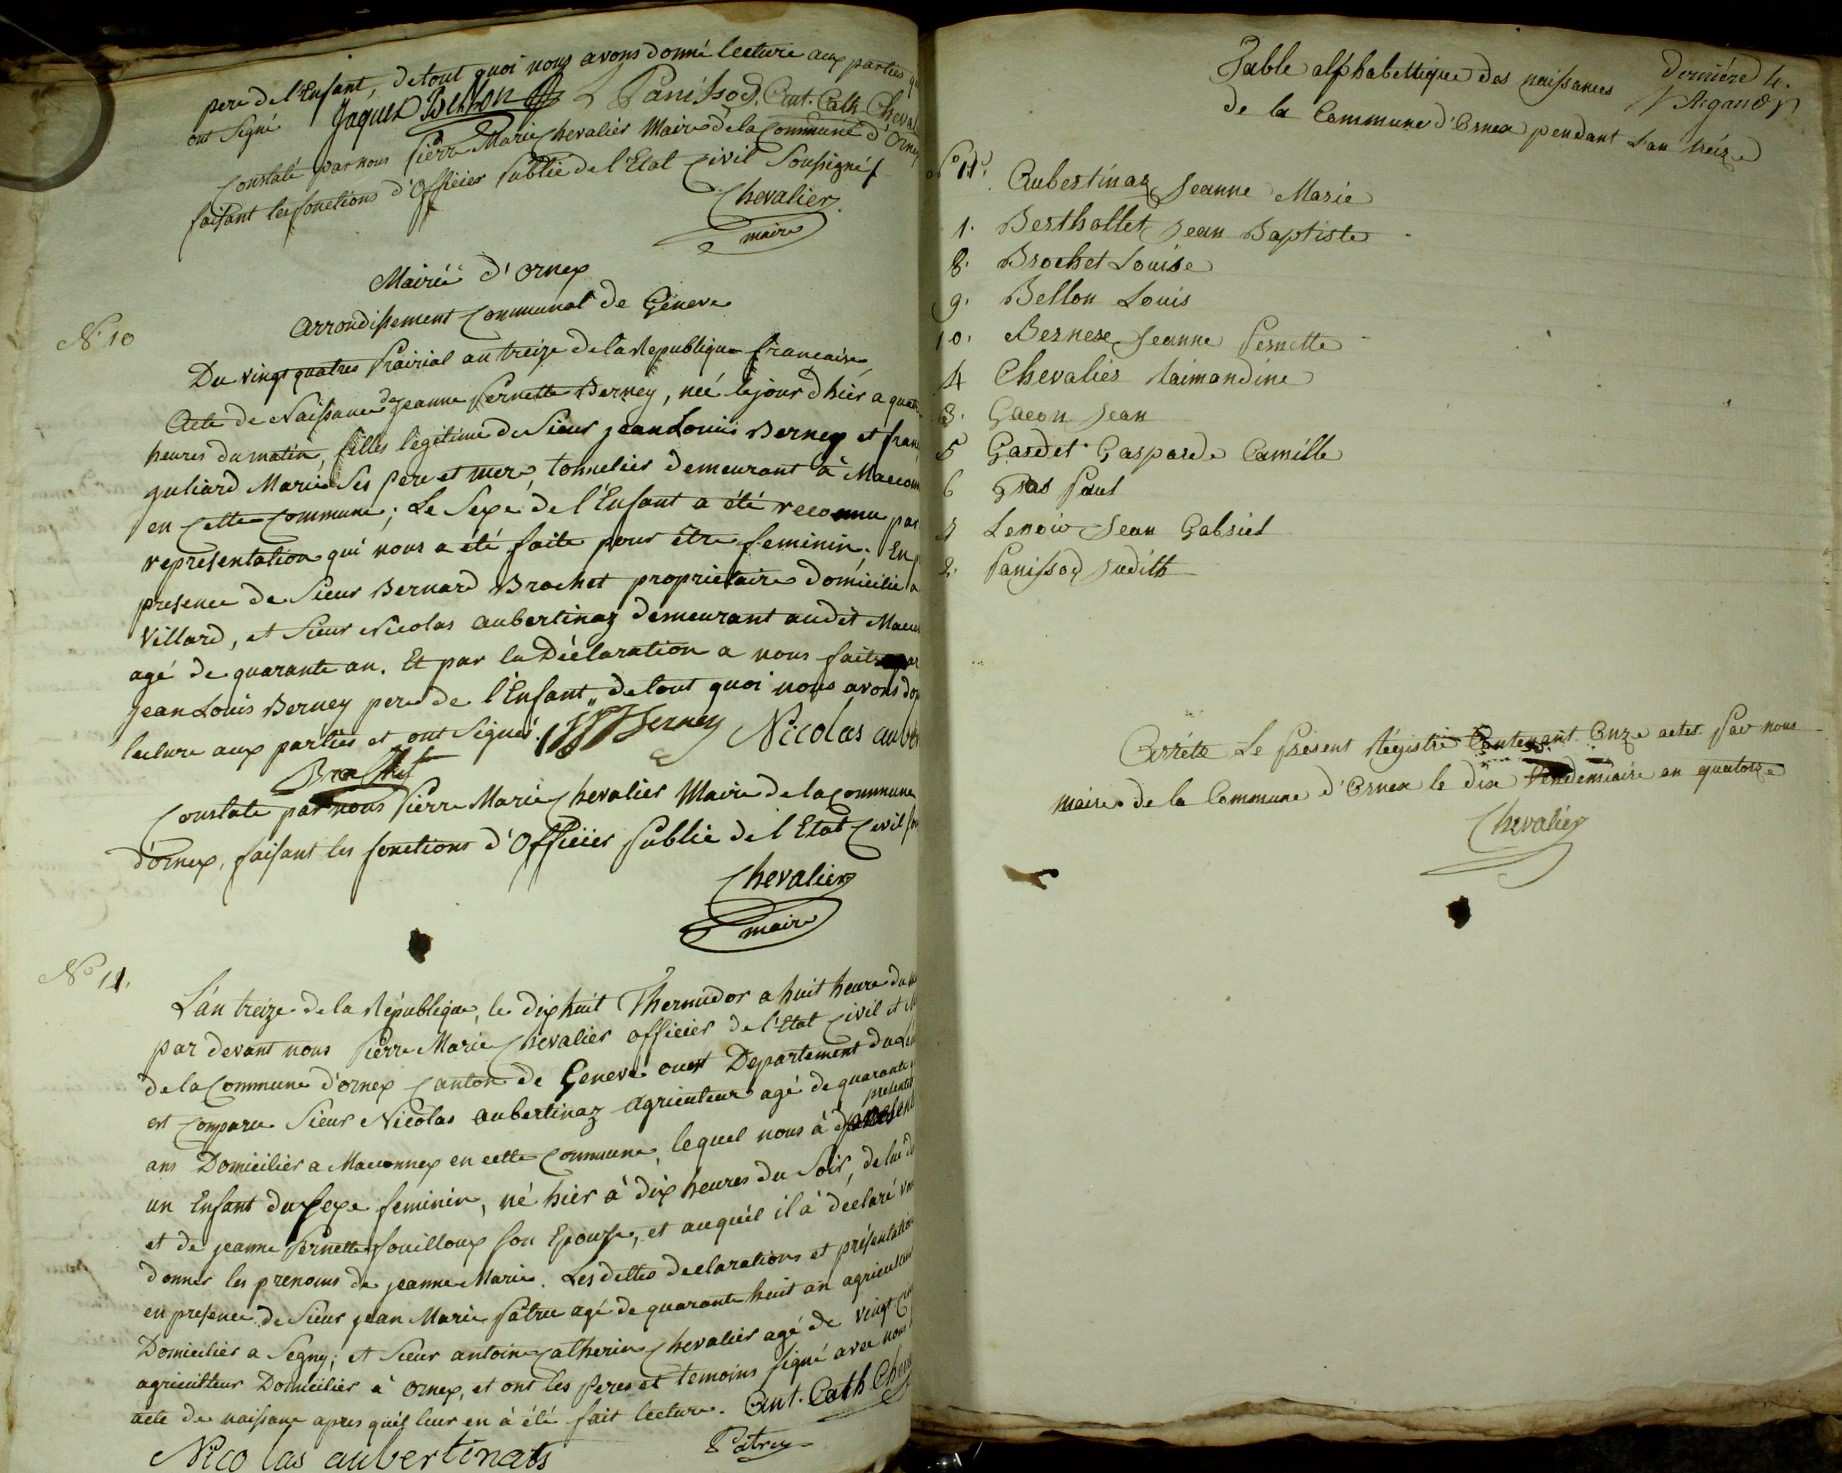 pere de l'Enfant, de tout quoi nous avons donné lecture aux parties
ont Signé Jaques Bellon Panissod, Ant. Cath Cheval
Constaté par nous Pierre Marie Chevalier Maire de la Commune d'Ornex
faisant les fonctions d'Officier Public de l'Etat Civil Soussignés
Chevalier
maire
Mairie d'Ornex
arrondissement Communal de Geneve
N. 10
Du vingt quatres Prairial an treize de la Republique francaise
Acte de Naissance de jeanne Pernette Berney, neé le jour d'hiér a quatre
heures du matin, filles légitime de Sieur jean Louis Berney et fran
guliard Marié Ses pere et mere, tonnelier demeurant à Maconn
en Cette Commune; Le Sexe de l'Enfant a été reconnu par
representation qui nous a été faite pour être feminin. En
presence de Sieur Bernard Brochet proprietaire domicilié a
Villard, et Sieur Nicolas aubertinaz demeurant audit Macon
agé de quarante an. Et par la Déclaration a nous faite par
jean Louis Berney pere de l'Enfant, de tout quoi nous avons don
lecture aux parties et ont Signés. Berney Nicolas auber
Brochet
Constaté par nous Pierre Marie Chevalier Maire de la Commune
d'Ornex, faisant les fonctions d'Officier Public de l'Etat Civil
Chevalier
maire
No 11.
L'an treize de la République, le dix huit Thermidor a huit heure du
par devant nous Pierre Marie Chevalier officier de l'Etat Civil et
de la Commune d'ornex Canton de Geneve ouest Departement du Lé
est Comparu Sieur Nicolas aubertinaz agriculteur agé de quarante
ans Domicilier a Maconnex en cette Commune, lequel nous à presenté
un Enfant du sexe feminin, né hier à dix heures du Soir, de lui dé
et de jeanne Pernette fouilloux son Epouse, et auquél il à déclaré vou
donner les prenoms de jeanne Marie. Les dittes declarations et présentation
en presence de Sieur jean Marie Patru agé de quarante huit an agriculteur
Domicilier a Segny; et Sieur antoine Catherin Chevalier agé de vingt cin
agriculteur Domicilier à Ornex, et ont les Peres et temoins signé avec nous
acte de naissance apres qu'il leur en à été fait lecture. Ant. Cath Cheva
Nicolas aubertinats Patru
Table alphabettique des naissances
de la Commune d'Ornex pendant L'an treize
derniére 4.
Argand
No 11. Aubertinaz Jeanne Marie
1. Berthollet Jean Baptiste
8. Brochet Louise
9. Bellon Louis
10. Bernex Jeanne Pernette
4 Chevalier Raimondine
3. Gacon Jean
5 Gardet Gasparde Camille
6 Gras Paul
7 Lenoir Jean Gabriel
2. Panissod Judith
Arrété Le Présent Régistre Contenant Onze actes Par nous
maire de la Commune d'Ornex le dix Vendemiaire an quatorze
Chevalier